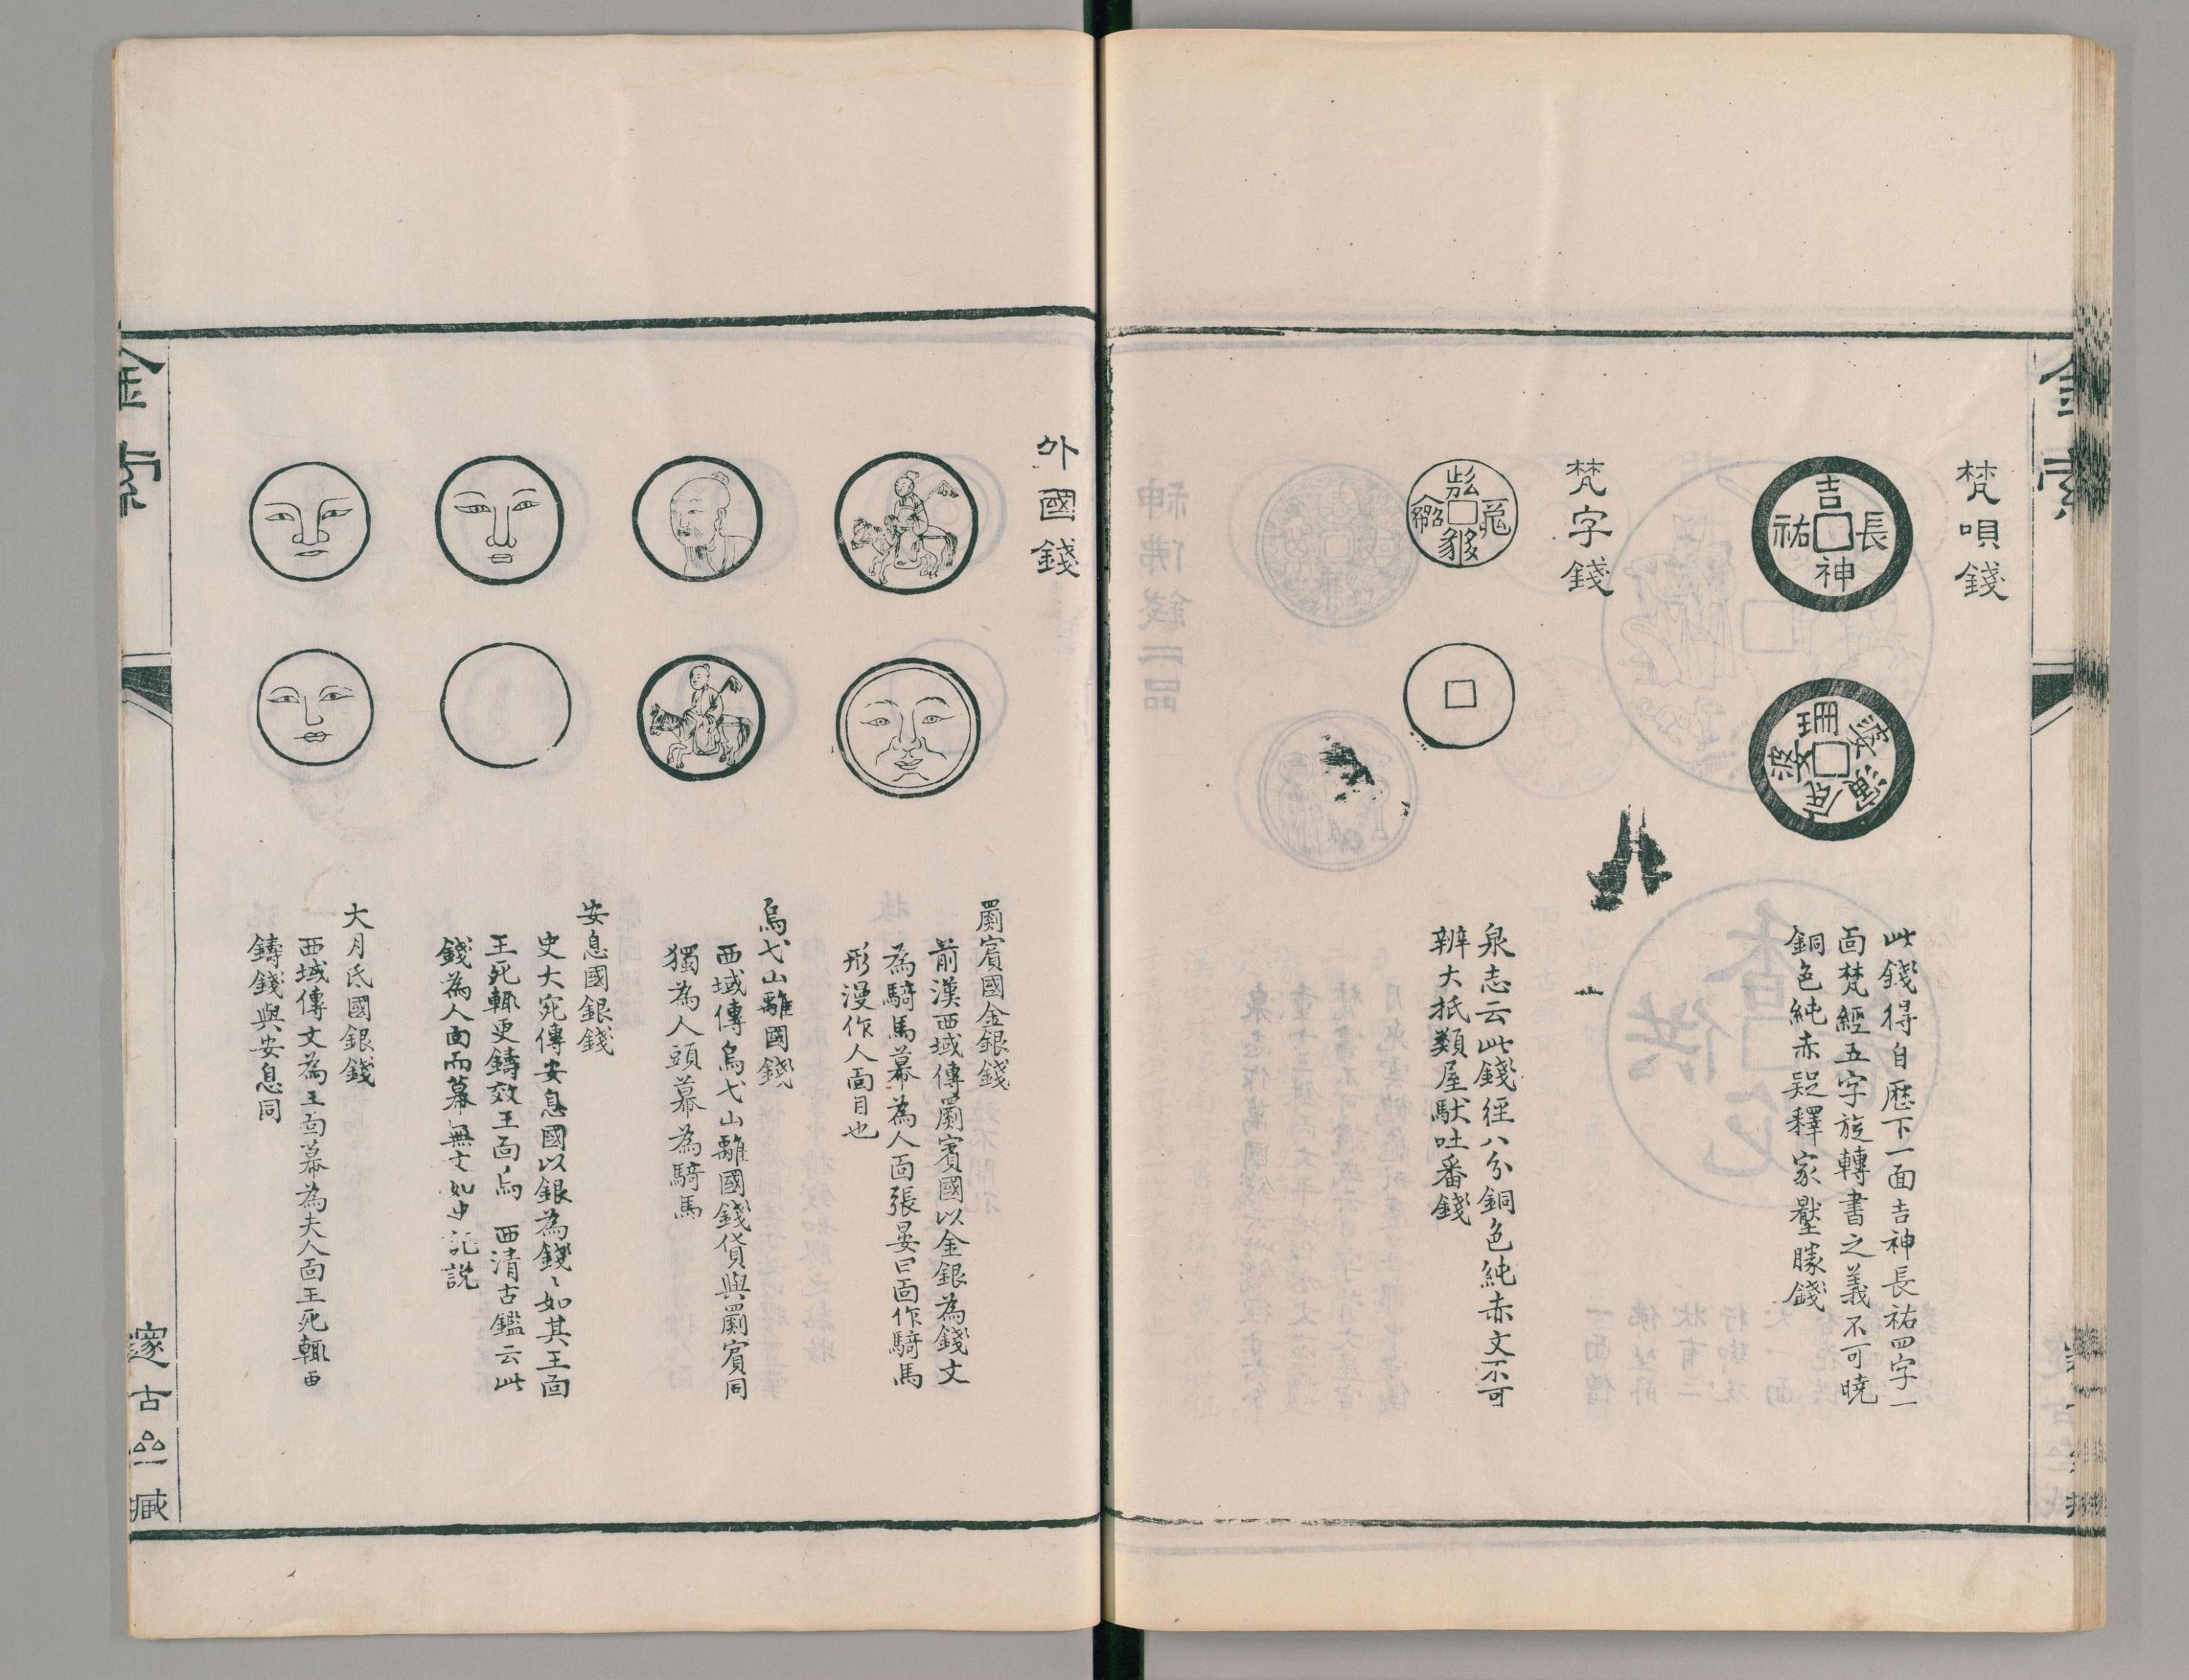 梵唄錢
吉神長祐
此錢得自歷下一面吉神長祐四字一
面梵經五字旋轉書之義不可曉
銅色純赤疑釋家壓勝錢
梵字錢
泉志云此錢徑八分銅色純赤文不可
辨大抵類屋馱吐番錢
外國錢
罽賓國金銀錢
前漢西域傳罽賓國以金銀為錢文
為騎馬幕為人面張晏曰面作騎馬
形漫作人面目也
烏弋山離國錢
西域傳烏弋山離國錢貨與罽賓同
獨為人頭幕為騎馬
安息國銀錢
史大宛傳安息國以銀為錢〻如其王面
王死輒更鑄效王面焉 西清古鑑云此
錢為人面而幕無文如史記説
大月氐國銀錢
西域傳文為王面幕為夫人面王死輒更
鑄錢與安息同
金索
邃古 臧